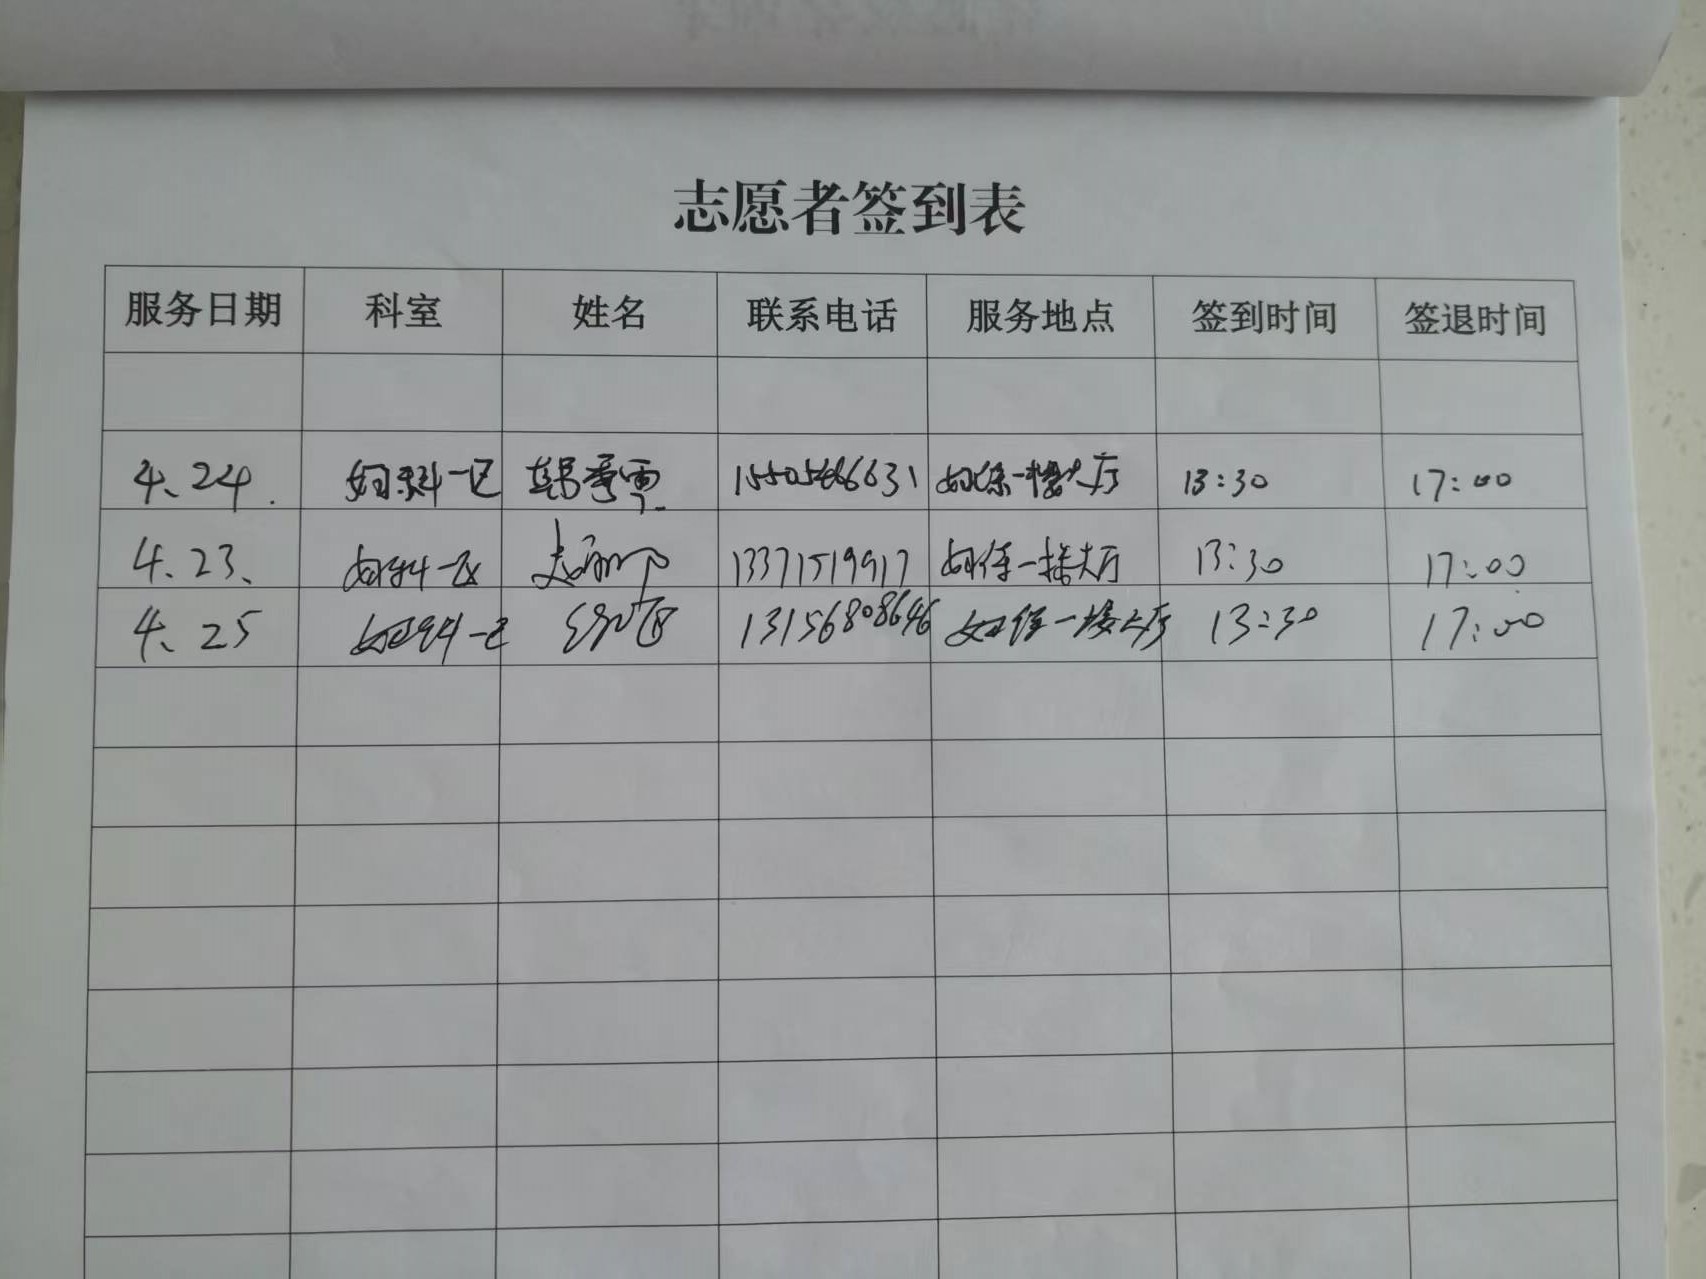 志愿者签到表
服务日期 科室 姓名 联系电话 服务地点 签到时间 签退时间
4.24. 妇科一区 妇保一楼大厅 13:30 17:00
4.23. 妇科一区 13371519917 妇保一楼大厅 13:30 17:00
4.25 妇科一区 13156808646 妇保一楼大厅 13:30 17:00